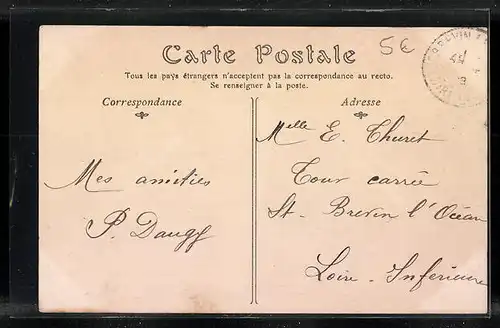 5€
Carte Postale
Tous les pays étrangers n'acceptent pas la correspondance au recto.
Se renseigner à la poste.
Correspondance
Adresse
Melle E. Thuret
Mes amitiés
Tour carrée
P. Daugy
St. Brevin l'Océan
Loire-Inférieure